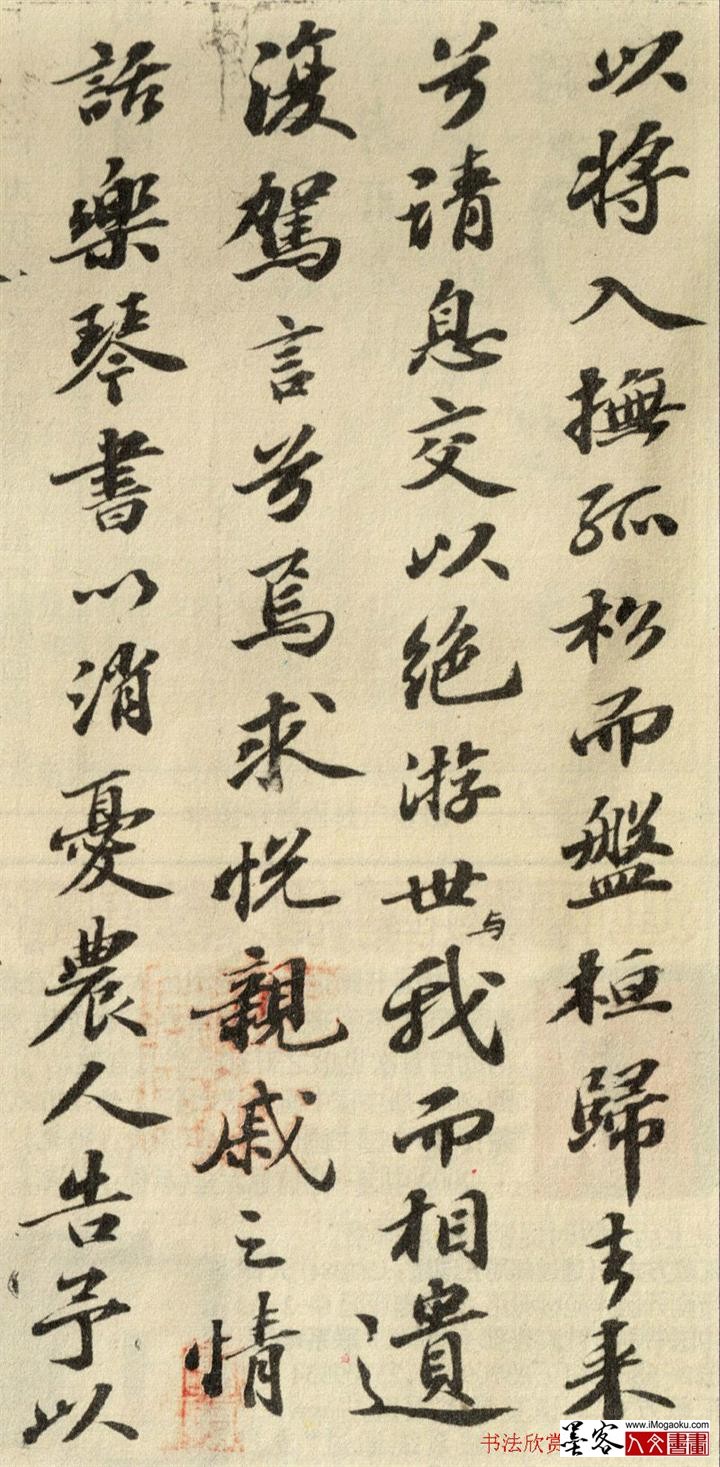 以将入撫孤松而盤桓歸去来
兮請息交以絶游世与我而相遺
復駕言兮焉求悦親戚之情
話樂琴書以消憂農人告予以
书法欣赏
墨客
www.iMogaoku.com
人文書畫